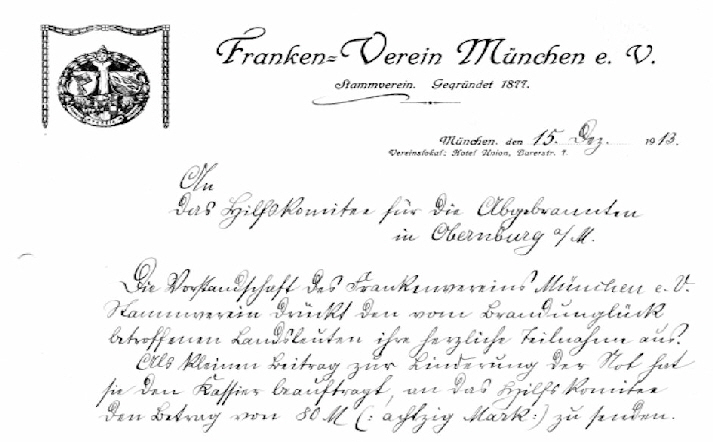 Franken-Verein München e. V.
Stammverein. Gegründet 1877.
München, den 15. Dez. 1913.
Vereinslokal: Hotel Union, Barerstr. 7.
An
das Hilfskomitee für die Abgebrannten
in Obernburg a/M.
Die Vorstandschaft des Frankenvereins München e. V.
Stammverein drückt den vom Brandunglück
betroffenen Landsleuten ihre herzliche Teilnahme aus.
Als kleinen Beitrag zur Linderung der Not hat
sie den Kassier beauftragt, an das Hilfskomitee
den Betrag von 80 M (: achtzig Mark :) zu senden.